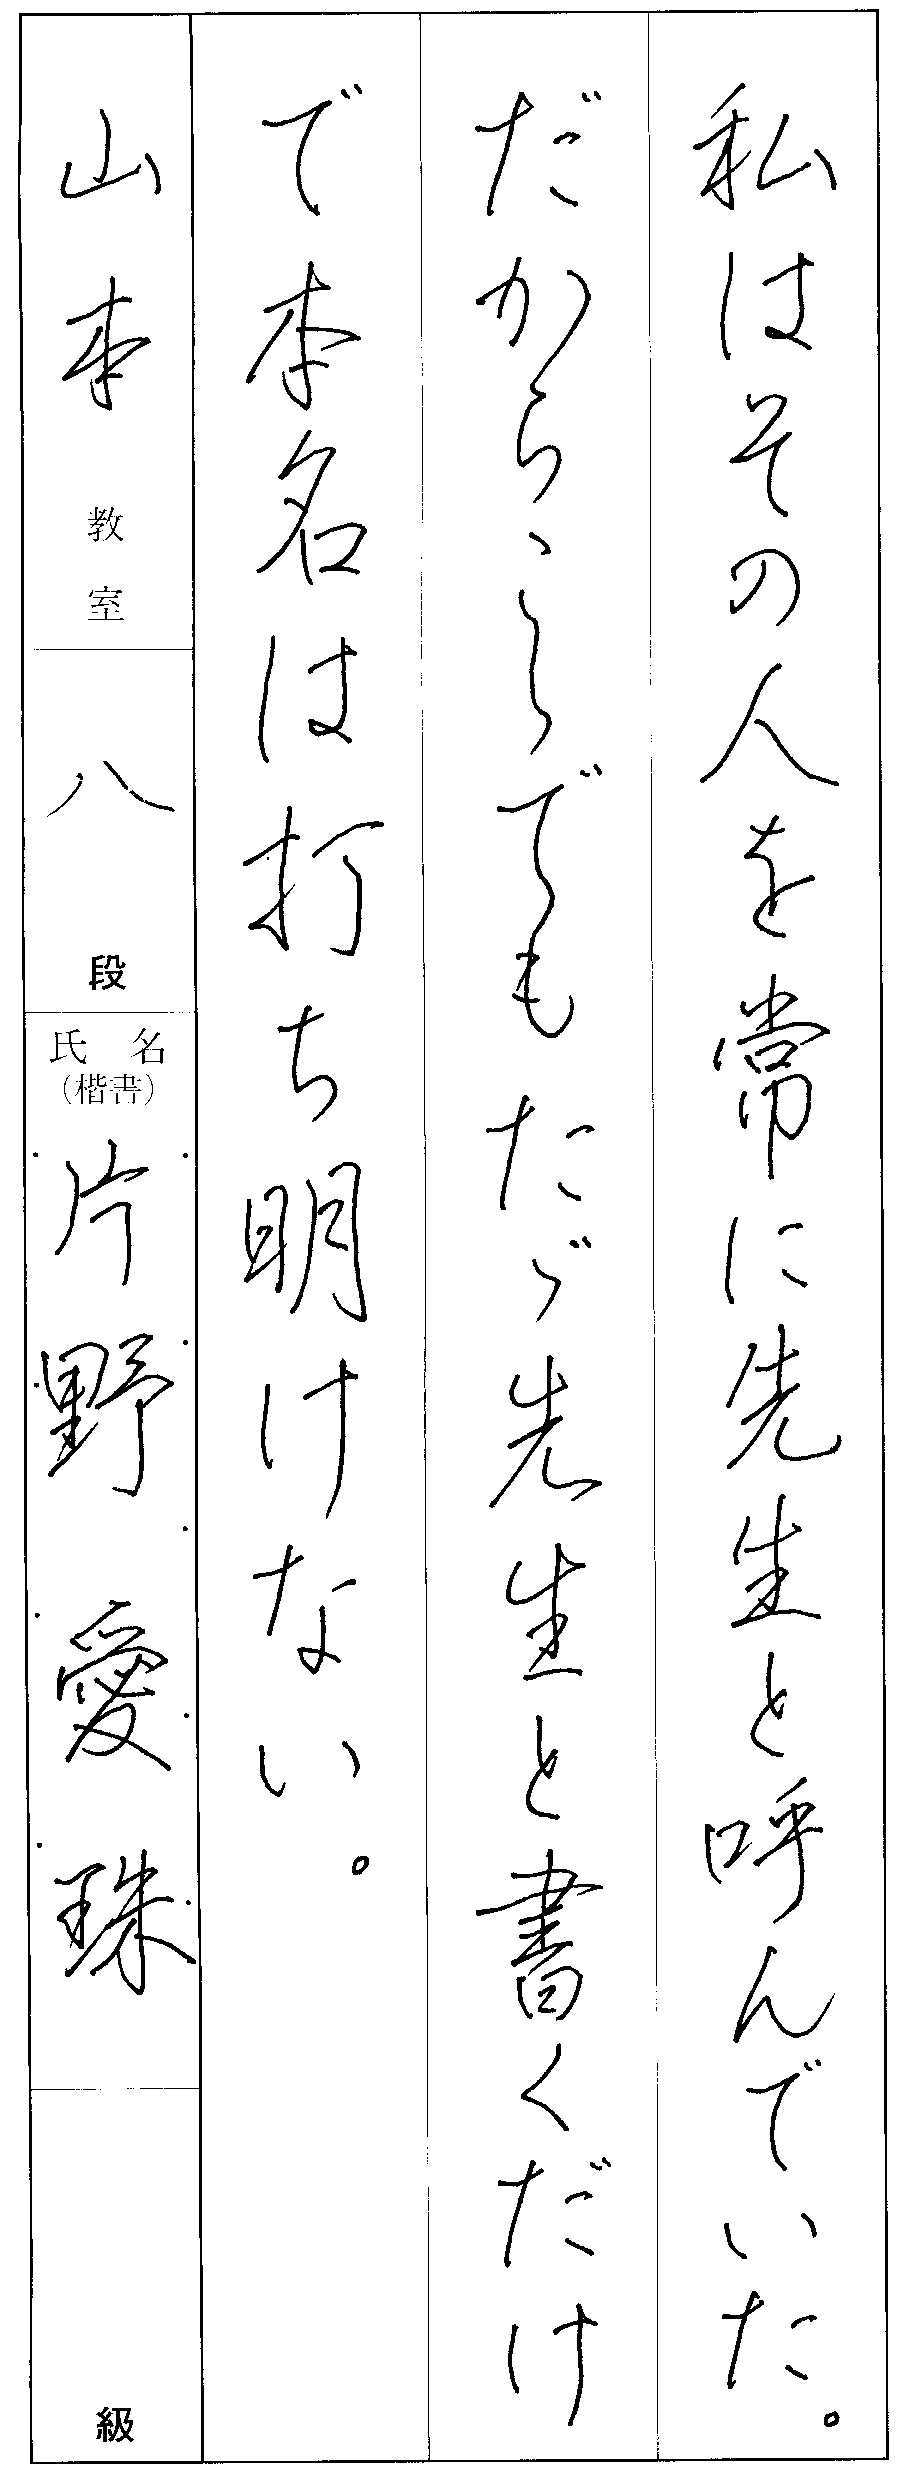 私はその人を常に先生と呼んでいた。
だからこゝでもたゞ先生と書くだけ
で本名は打ち明けない。
山本教室
八段
氏名
（楷書）
片野愛珠
級